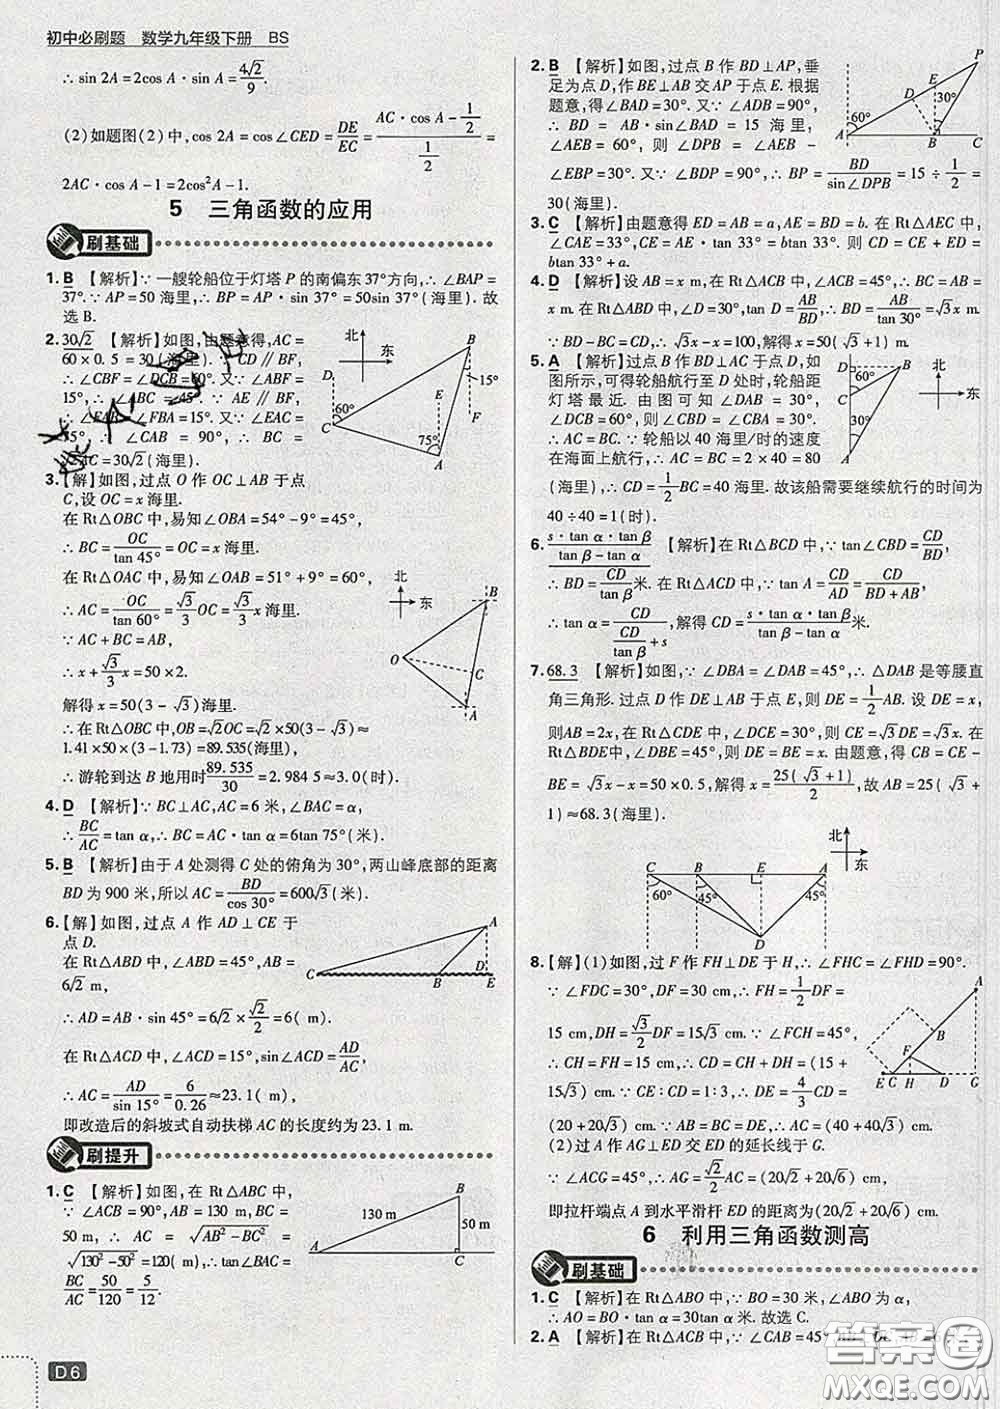 初中必刷题 数学九年级下册 BS
∴ sin 2A = 2cos A · sin A = 4√2/9.
(2)如题图(2)中,cos 2A = cos∠CED = DE/EC = (AC · cos A - 1/2)/(1/2) =
2AC · cos A - 1 = 2cos²A - 1.
5 三角函数的应用
刷基础
1. B 【解析】∵ 一艘轮船位于灯塔 P 的南偏东37°方向,∴ ∠BAP =
37°. ∵ AP = 50 海里,∴ BP = AP · sin 37° = 50sin 37°(海里). 故
选 B.
2. 30√2 【解析】如图,由题意得,AC =
60 × 0.5 = 30(海里). ∵ CD∥BF,
∴ ∠CBF = ∠DCB = 60°. 又∵ ∠ABF =
15°, ∴ ∠ABC = 45°. ∵ AE∥BF,
∴ ∠EAB = ∠FBA = 15°. 又∵ ∠EAC =
75°, ∴ ∠CAB = 90°, ∴ BC =
√2AC = 30√2(海里).
北
东
D
60°
C
B
15°
F
E
75°
A
3. 【解】如图,过点 O 作 OC⊥AB 于点
C,设 OC = x 海里.
在 Rt△OBC 中,易知∠OBA = 54° - 9° = 45°,
∴ BC = OC/tan 45° = OC = x 海里.
在 Rt△OAC 中,易知∠OAB = 51° + 9° = 60°,
∴ AC = OC/tan 60° = √3/3 OC = √3/3 x 海里.
∵ AC + BC = AB,
∴ x + √3/3 x = 50 × 2.
解得 x = 50(3 - √3).
∴ 在 Rt△OBC 中,OB = √2OC = √2 × 50(3 - √3) ≈
1.41 × 50 × (3 - 1.73) = 89.535(海里).
∴ 游轮到达 B 地用时 89.535/30 = 2.984 5 ≈ 3.0(时).
北
东
B
O
C
A
4. D 【解析】∵ BC⊥AC,AC = 6 米,∠BAC = α,
∴ BC/AC = tan α,∴ BC = AC · tan α = 6tan 75°(米).
5. B 【解析】由于 A 处测得 C 处的俯角为 30°,两山峰底部的距离
BD 为 900 米,所以 AC = BD/cos 30° = 600√3(米).
6. 【解】如图,过点 A 作 AD⊥CE 于
点 D.
在 Rt△ABD 中, ∠ABD = 45°, AB =
6√2 m,
∴ AD = AB · sin 45° = 6√2 × √2/2 = 6(m).
在 Rt△ACD 中, ∠ACD = 15°, sin∠ACD = AD/AC,
∴ AC = AD/sin 15° ≈ 6/0.26 ≈ 23.1(m),
即改造后的斜坡式自动扶梯 AC 的长度约为 23.1 m.
A
C
B
D
E
刷提升
1. C 【解析】如图,在 Rt△ABC 中,
∵ ∠ACB = 90°, AB = 130 m, BC =
50 m, ∴ AC = √(AB² - BC²) =
√(130² - 50²) = 120(m),
∴ BC/AC = 50/120 = 5/12.
B
130 m
50 m
A
C
2. B 【解析】如图,过点 B 作 BD⊥AP,垂
足为点 D,作 BE⊥AB 交 AP 于点 E. 根
据题意,得∠BAD = 30°. 又∵ ∠ADB = 90°,
∴ BD = AB · sin∠BAD = 15 海里,
∠AEB = 60°, 则 ∠DPB = ∠AEB -
∠EBP = 30°. 又∵ ∠BDP = 90°, ∴ BP = BD/sin∠DPB = 15 ÷ 1/2 =
30(海里).
P
E
D
30°
60°
A
B
C
3. C 【解析】由题意得 ED = AB = a,AE = BD = b. 在 Rt△AEC 中,
∠CAE = 33°, CE = AE · tan 33° = btan 33°, 故 CD = CE + ED =
btan 33° + a.
4. D 【解析】设 AB = x m,在 Rt△ACB 中,∠ACB = 45°,∴ BC = AB =
x m. 在 Rt△ABD 中,∠D = 30°,tan D = AB/BD,∴ BD = AB/tan 30° = √3x m.
∵ BD - BC = CD,∴ √3x - x = 100,解得 x = 50(√3 + 1) m.
5. A 【解析】过点 B 作 BD⊥AC 于点 D,
如图所示,可得轮船航行至 D 处时,轮船距
灯塔最近. 由图可知∠DAB = 30°,
∠DCB = 60°, 则 ∠CBD = ∠CBA = 30°,
∴ AC = BC. ∵ 轮船以 40 海里/时的速度
在海面上航行,∴ AC = BC = 2 × 40 = 80
(海里),∴ CD = 1/2 BC = 40 海里. 故该船需要继续航行的时间为
40 ÷ 40 = 1(时).
北
东
D
C
60°
B
30°
A
6. (s · tan α · tan β)/(tan β - tan α) 【解析】在 Rt△BCD 中,∵ tan∠CBD = CD/BD,
∴ BD = CD/tan β 米. 在 Rt△ACD 中,∵ tan A = CD/AD = CD/(BD + AB),
∴ tan α = CD/(CD/tan β + s),解得 CD = (s · tan α · tan β)/(tan β - tan α) 米.
7. 68.3 【解析】如图,∵ ∠DBA = ∠DAB = 45°,∴ △DAB 是等腰直
角三角形. 过点 D 作 DE⊥AB 于点 E,则 DE = 1/2 AB. 设 DE = x,
则 AB = 2x,在 Rt△CDE 中,∠DCE = 30°,则 CE = √3DE = √3x. 在
Rt△BDE 中,∠DBE = 45°,则 DE = BE = x. 由题意,得 CB = CE -
BE = √3x - x = 50 × 0.5,解得 x = 25(√3 + 1)/2,故 AB = 25(√3 +
1) ≈ 68.3(海里).
北
东
C
B
E
A
60°
45°
45°
D
8. 【解】(1)如图,过 F 作 FH⊥DE 于 H,∴ ∠FHC = ∠FHD = 90°.
∵ ∠FDC = 30°, DF = 30 cm, ∴ FH = 1/2 DF =
15 cm,DH = √3/2 DF = 15√3 cm. ∵ ∠FCH = 45°,
∴ CH = FH = 15 cm, ∴ CD = CH + DH = (15 +
15√3) cm. ∵ CE : CD = 1 : 3, ∴ DE = 4/3 CD =
(20 + 20√3) cm.
(2)过 A 作 AG⊥ED 交 ED 的延长线于 G.
∵ ∠ACG = 45°, ∴ AG = √2/2 AC = (20√2 + 20√6) cm,
即拉杆端点 A 到水平滑杆 ED 的距离为(20√2 + 20√6) cm.
A
B
F
E
C
H
D
G
6 利用三角函数测高
刷基础
1. C 【解析】在 Rt△ABO 中, ∵ BO = 30 米, ∠ABO 为 α,
∴ AO = BO · tan α = 30tan α 米. 故选 C.
2. A 【解析】在 Rt△ACB 中, ∵ ∠CAB = 45°
D6
答案圈
MXQE.COM